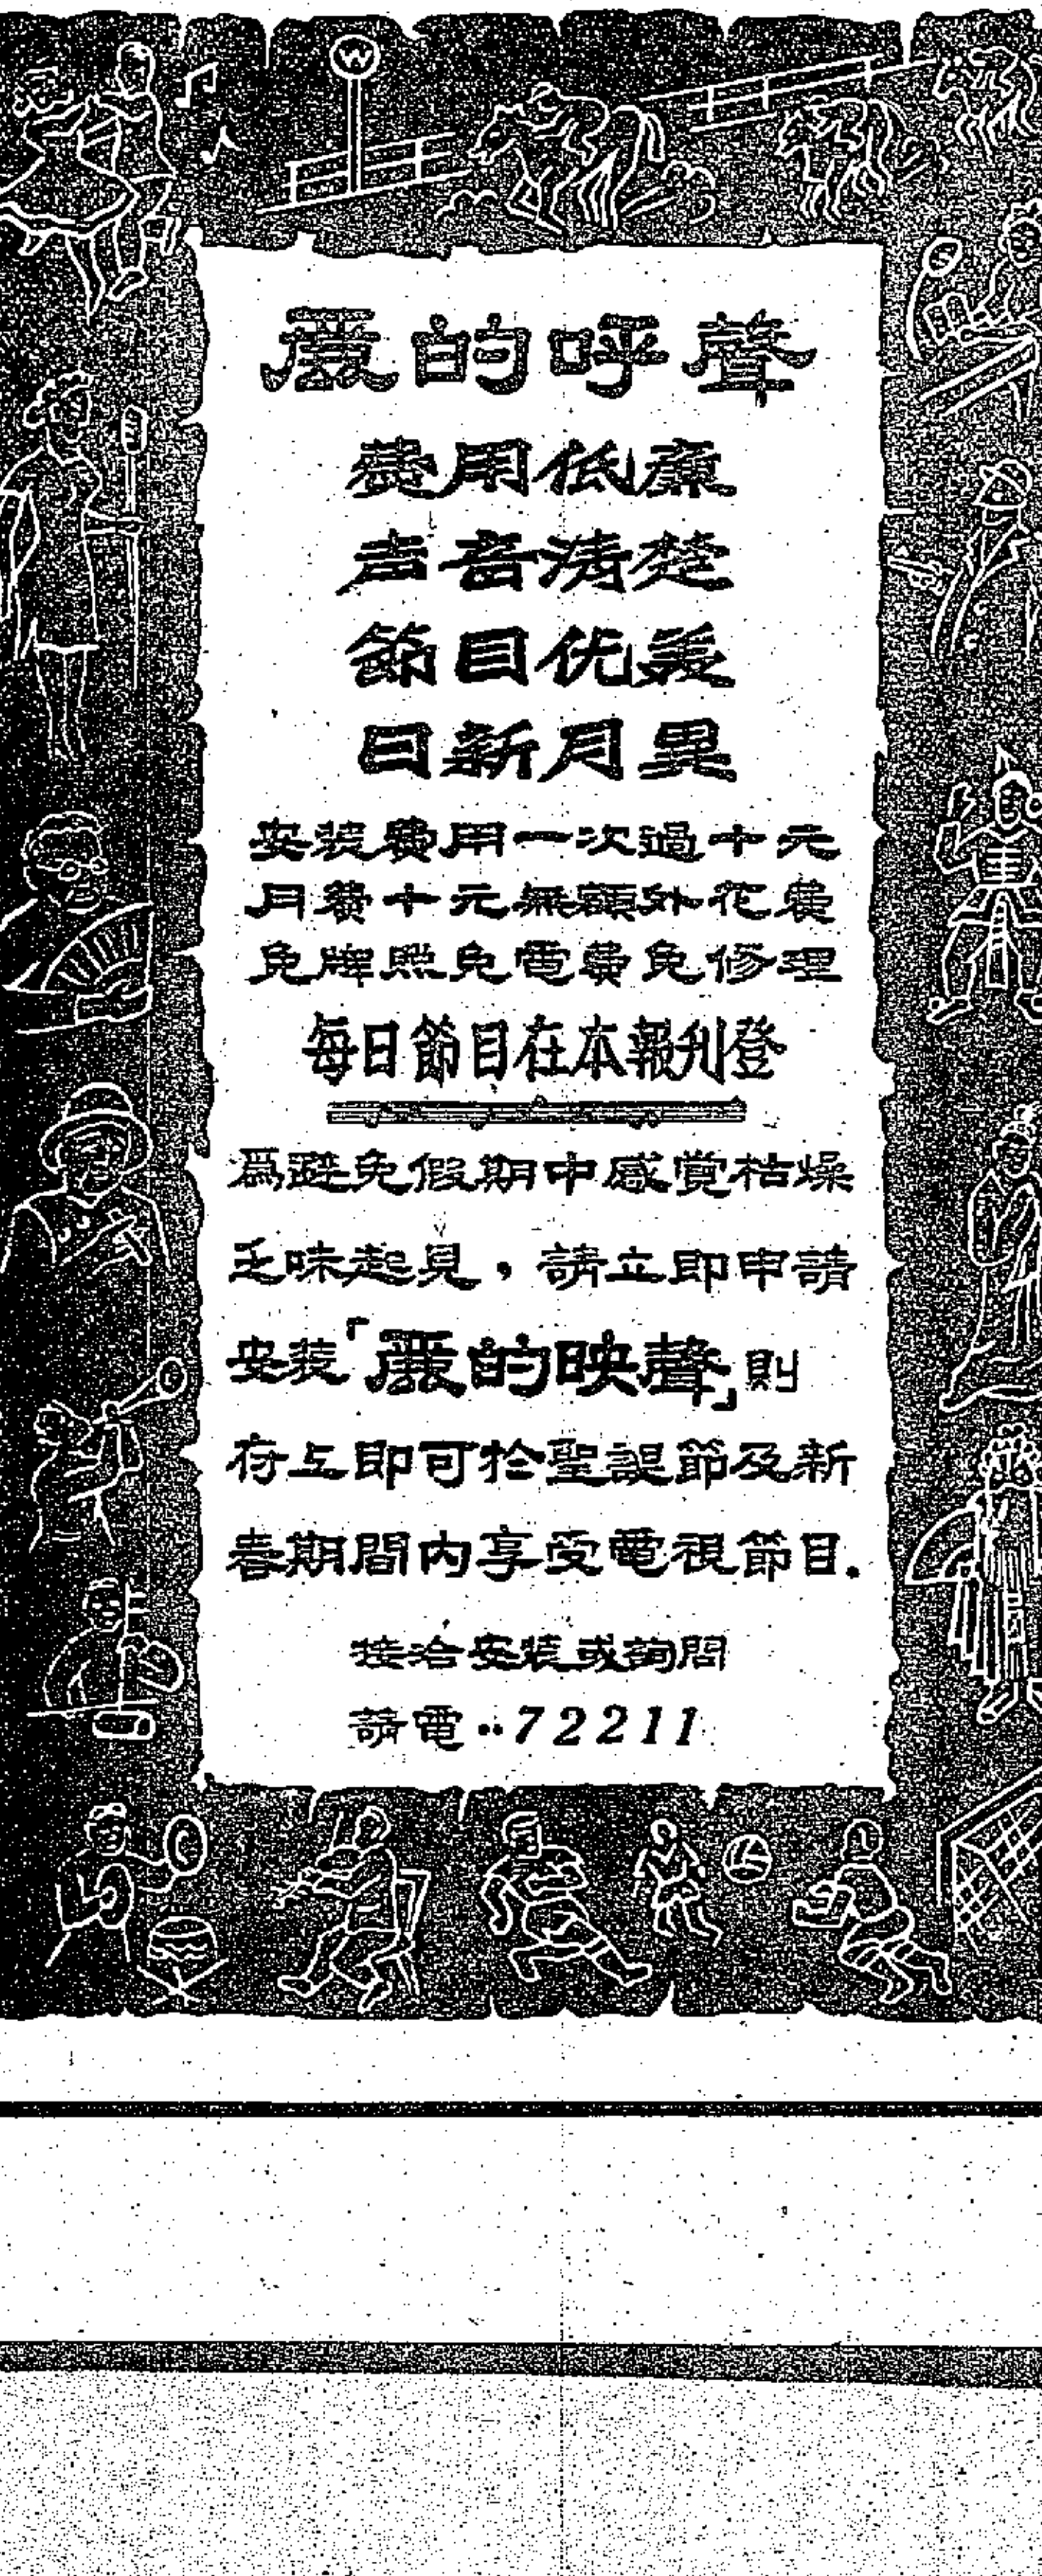 W
麗的呼聲
費用低廉
声音清楚
節目优美
日新月異
安装費用一次過十元
月費十元無額外花費
免牌照免電費免修理
每日節目在本報刊登
爲避免假期中感覚枯燥
乏味起見，請立即申請
安装「麗的映聲」則
府上即可於聖誕節及新
春期間内享受電視節目.
接洽安装或詢問
請電：72211